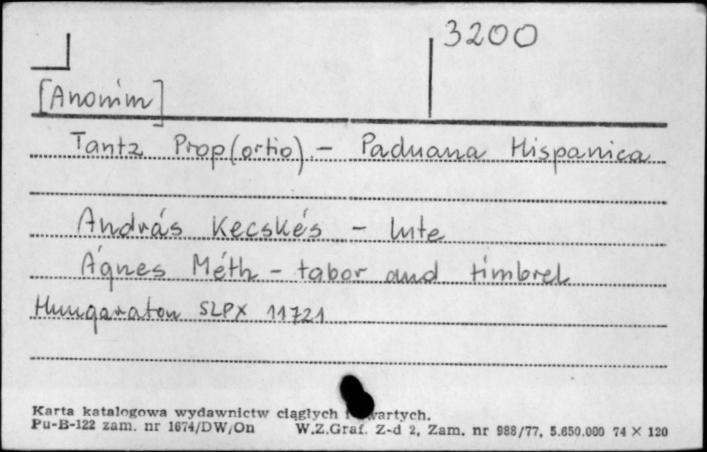 3200
[Anonim]
Tantz Prop(ortio). - Paduana Hispanica
András Kecskés - lute
Ágnes Méth - tabor and timbrel
Hungaraton SLPX 11721
Karta katalogowa wydawnictw ciągłych i wartych.
Pu-B-122 zam. nr 1674/DW/On W.Z.Graf. Z-d 2, Zam. nr 988/77, 5.650.000 74 × 120